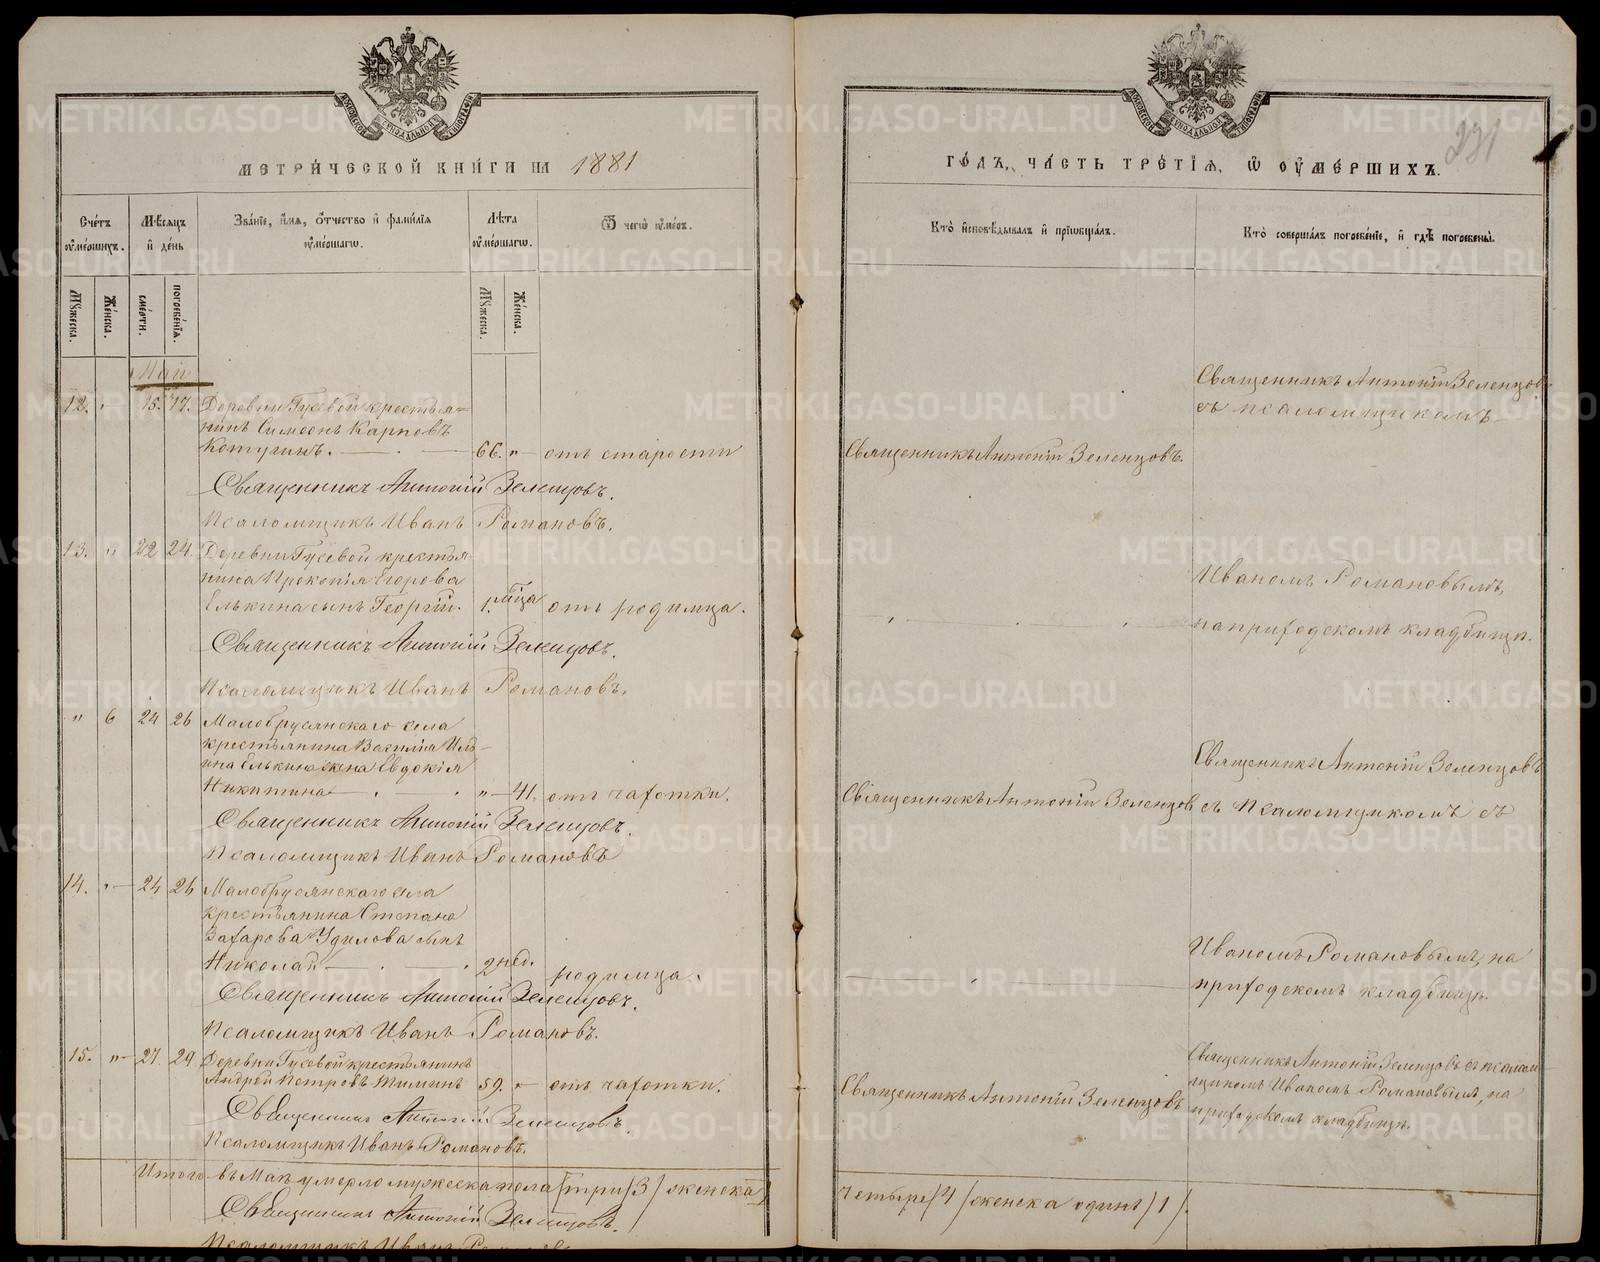 МЕТРИ́ЧЕСКОЙ КНИ́ГИ НА 1881
Счетъ ᲂумершихъ.
Мѣсяцъ и день
Званіе, имя, ѻтчество и фамилія ᲂумершагѡ.
Лѣта ᲂумершагѡ.
Ѿ чегѡ ᲂумеръ.
Мꙋжеска.
Женска.
смерти.
погребенія.
Мꙋжеска.
Женска.
Май
12. " 15. 17. Деревни Гусевой крестья-
нинъ Симеонъ Карповъ
Котугинъ. 66. " отъ старости
Священникъ Антоній Зеленцовъ.
Псаломщикъ Иванъ Романовъ.
13. " 22 24. Деревни Гусевой крестья-
нина Прокопія Егорова
Елькина сынъ Георгій. 1. мѣца отъ родимца.
Священникъ Антоній Зеленцовъ.
Псаломщикъ Иванъ Романовъ.
" 6 24 26 Малобрусянскаго села
крестьянина Василія Иль-
ина Елькина жена Евдокія
Никитина " 41. отъ чахотки.
Священникъ Антоній Зеленцовъ.
Псаломщикъ Иванъ Романовъ
14. " 24 26 Малобрусянскаго села
крестьянина Степана
Захарова Удилова сынъ
Николай 2 нед. родимца.
Священникъ Антоній Зеленцовъ.
Псаломщикъ Иванъ Романовъ.
15. " 27. 29 Деревни Гусевой крестьянинъ
Андрей Петровъ 59. " отъ чахотки.
Священникъ Антоній Зеленцовъ.
Псаломщикъ Иванъ Романовъ.
Итого въ Маѣ умерло мужеска пола (три) 3) женска
Священникъ Антоній Зеленцовъ.
Псаломщикъ Иванъ
ГО́ДЪ, ЧА́СТЬ ТРЕ́ТІѦ, Ѡ ОУ҆МЕ́РШИХЪ.
231
Кто исповѣдывалъ и пріѡбщалъ.
Кто совершалъ погребеніе, и гдѣ погребены.
Священникъ Антоній Зеленцовъ
съ псаломщикомъ
Священникъ Антоній Зеленцовъ.
Иваномъ Романовымъ,
на приходскомъ кладбищѣ.
Священникъ Антоній Зеленцовъ
Священникъ Антоній Зеленцов съ псаломщикомъ съ
Иваномъ Романовымъ, на
приходскомъ кладбищѣ.
Священникъ Антоній Зеленцовъ съ псалом-
щикомъ Иваномъ Романовымъ, на
Священникъ Антоній Зеленцовъ
приходскомъ кладбищѣ.
четыре (4) женска одинъ) 1).
METRIKI.GASO-URAL.RU